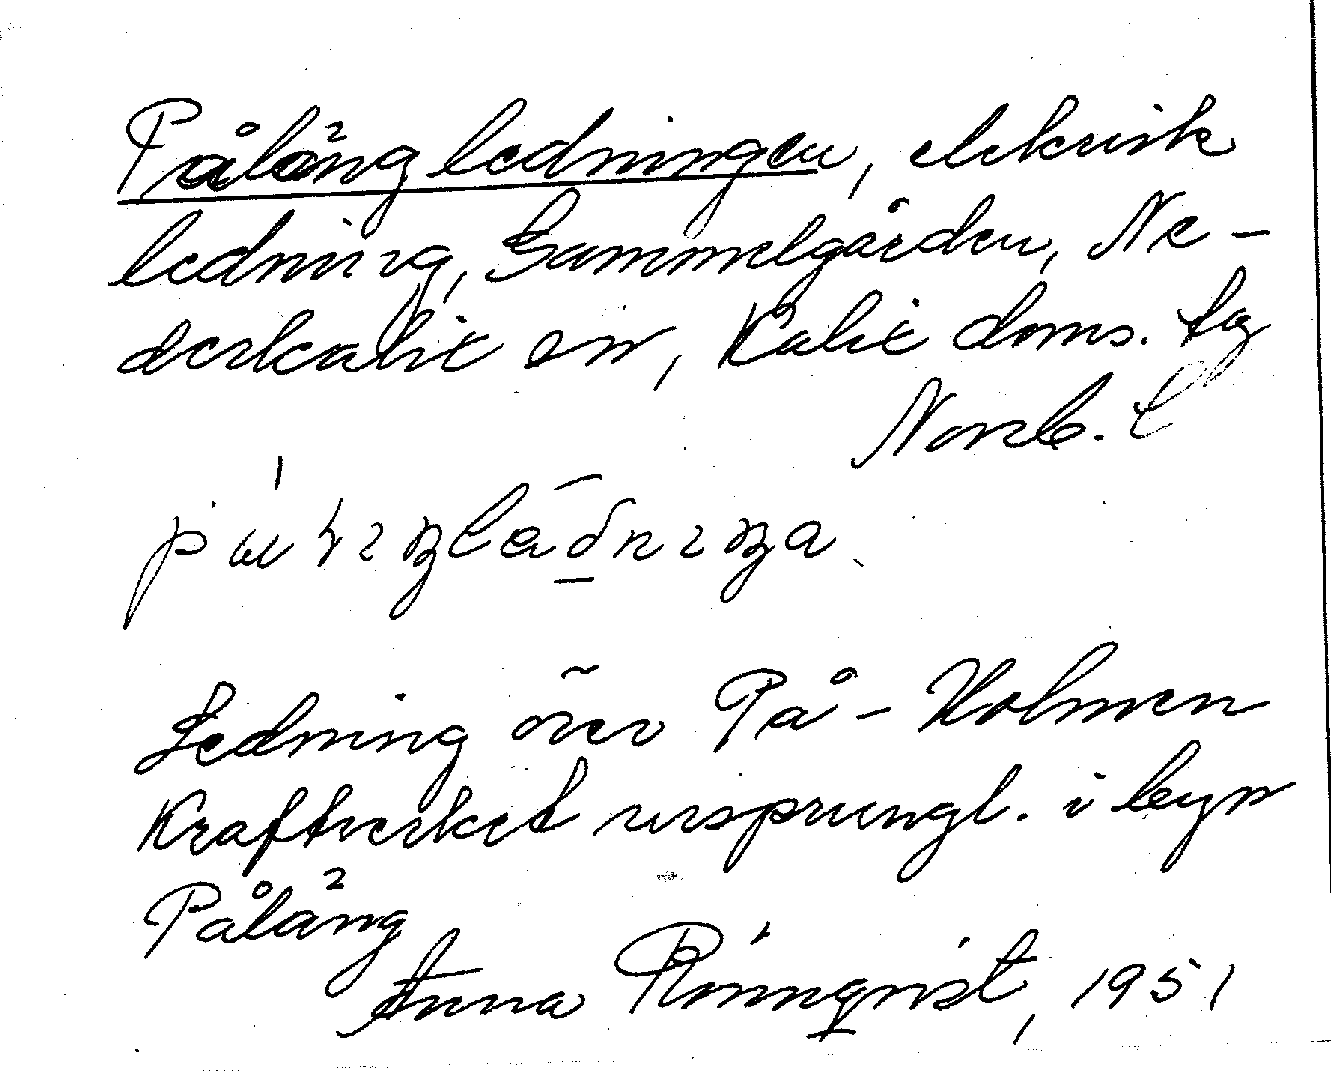 Pålängledningen, elektrisk
ledning, Gammelgården, Ne-
derkalix sn, Kalix doms. tg
Norrb. l
Ledning över På-Holmen
Kraftverket ursprungl. i byn
Påläng
Anna Rönnqvist, 1951